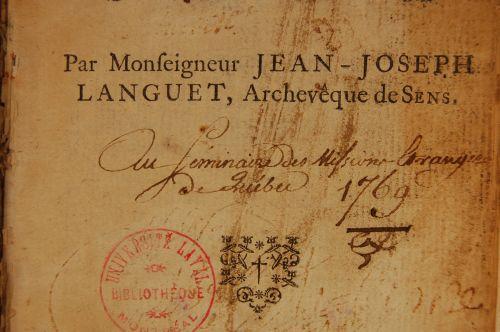 Par Monſeigneur JEAN-JOSEPH
LANGUET, Archevêque de SENS.
Au Séminaire des Missions Etrangeres
de Quebec 1769
UNIVERSITÉ LAVAL
BIBLIOTHÈQUE